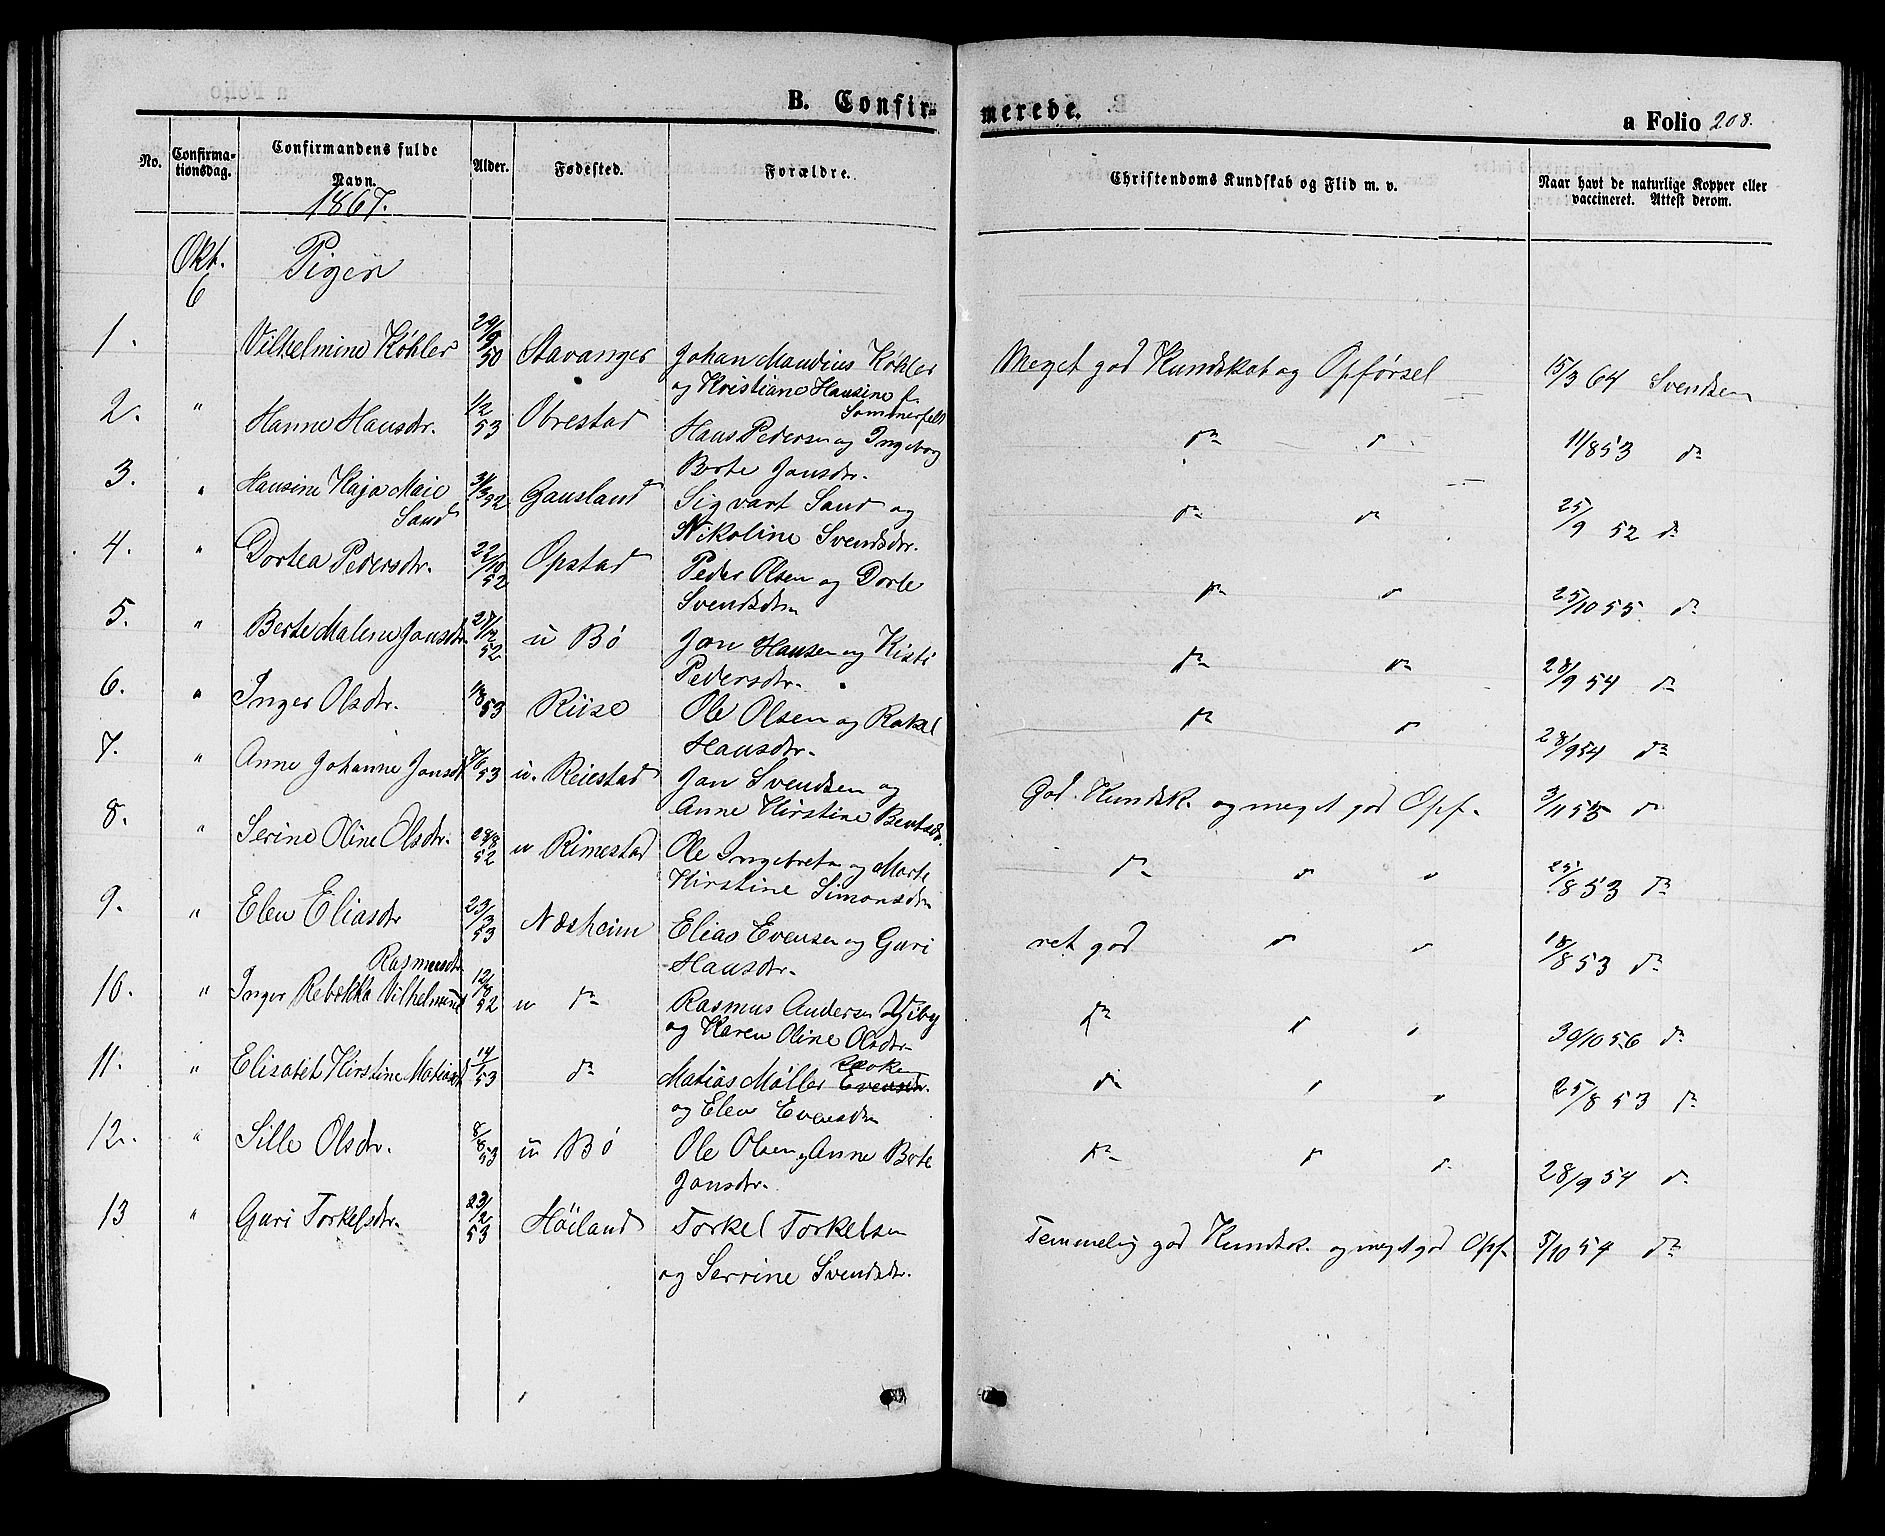 B. Confir-
merede.
a Folio 208.
No. Confirma-tionsdag. Confirmandens fulde Navn. Alder. Fødested. Forældre. Christendoms Kundskab og Flid m. v. Naar havt de naturlige Kopper eller vaccineret. Attest derom.
1867.
Okt. 6 Pigen
1. Vilhelmine Køhler 29/9 50 Stavanger Johan Maudius Køhler Meget god Kundskab og Opførsel 15/3 64 Svendsen
og Kristiane Hansine f. Sommerfelt
2. " Hanne Hansdr. 1/2 53 Obrestad Hans Pedersen og Ingeborg dº d 11/8 53 dº
Berte Jansdr.
3. " Hansine Kaja Maie Sand 31/3 52 Gausland Sigvart Sand og dº dº 25/9 52 dº
Nikoline Svendsdr.
4. " Dortea Pedersdr. 22/10 52 Opstad Peder Olsen og Dorte dº d 25/10 55 dº
Svendsdr
5. " Berte Malene Jansdr 27/12 52 u Bø Jan Hansen og Kisti dº dº 28/9 54 dº
Pedersdr.
6. " Inger Olsdr. 53 Riise Ole Olsen og Rakel dº d 28/9 54 dº
Hansdr.
7. " Anne Johanne Jansdr 53 u. Reiestad Jan Svendsen og God Kundsk. og meget god Opf. 3/11 55 dº
Anne Kirstine Bentsdr.
8. " Serine Oline Olsdr. 52 u Rimestad Ole Ingebretn og Marte dº d d 25/8 53 dº
Kirstine Simonsdr
9. " Elen Eliasdr 23/3 53 Næsheim Elias Evensen og Guri ret god d d 18/8 53 dº
Hansdr.
10. " Inger Rebekka Vilhelmine Rasmusdr 52 u dº Rasmus Andersen Viby dº d d 30/10 56 dº
og Karen Oline Olsdr.
11. " Elisabet Kirstine Matiasdr 53 dº Matias Møller Evensen dº d d 25/8 53 dº
og Elen Evensdr
12. " Sille Olsdr. 8/8 53 u Bø Ole Olsen og Anne Berte dº d dº 28/9 54 dº
Jansdr.
13 " Guri Torkelsdr. 23/2 53 Høiland Torkel Torkelsen Temmelig god Kundsk. og meget god Opf. 5/10 54 dº
og Serrine Svendsdr.